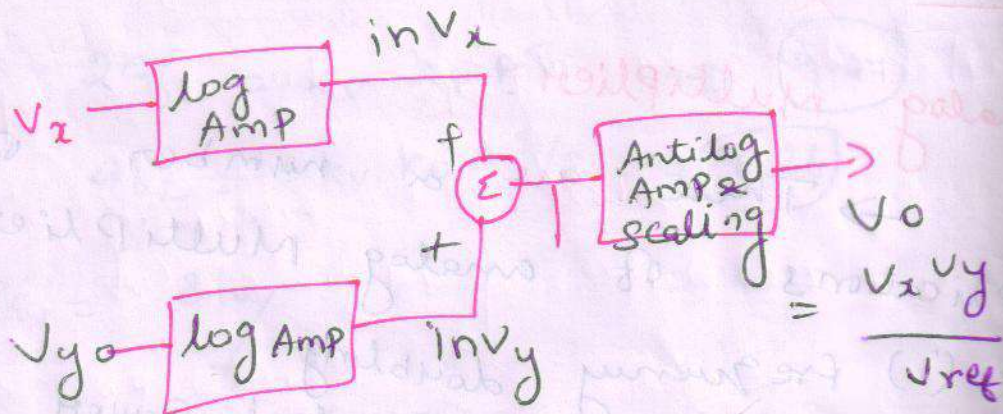 inVx
Vx
log
AMP
f
Σ
+
Antilog
AMP &
scaling
Vo
= Vx Vy
Vref
Vy
log AMP
inVy